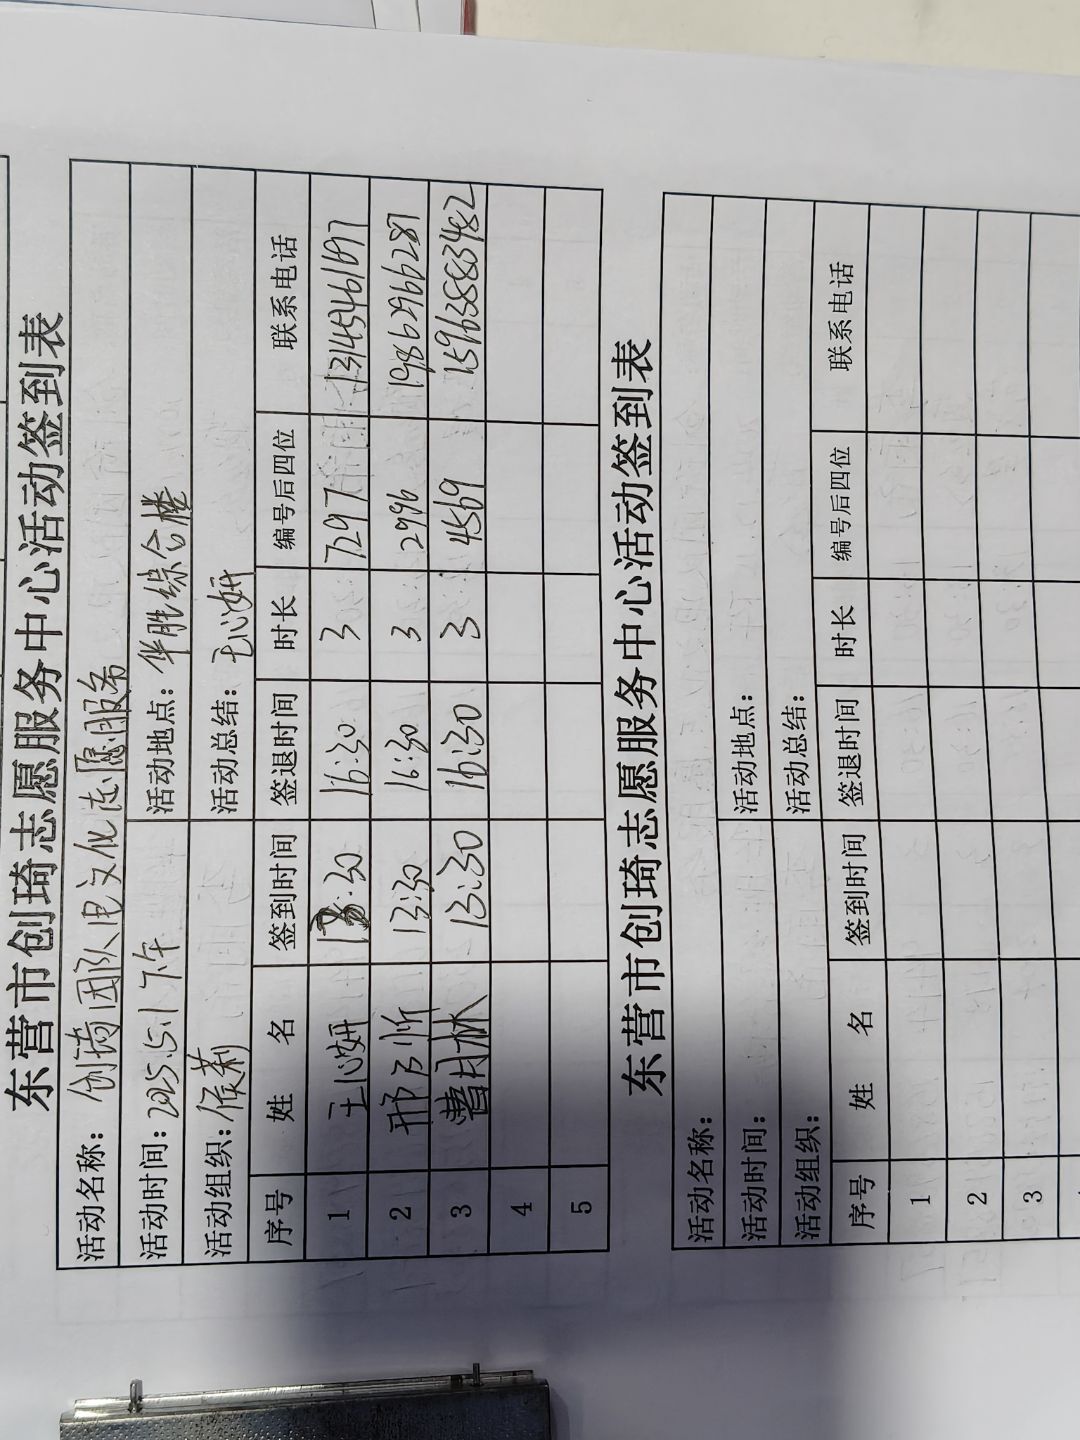 东营市创琦志愿服务中心活动签到表
活动名称：创琦团队电文化志愿服务
活动时间：2025.5.1下午 活动地点：华胜综合楼
活动组织：侯莉 活动总结：王心妍
序号 姓名 签到时间 签退时间 时长 编号后四位 联系电话
1 王心妍 13:30 16:30 3 7297
2 13:30 16:30 3 2996 19862966287
3 曹月林 13:30 16:30 3 4569 15963883482
4
5
东营市创琦志愿服务中心活动签到表
活动名称：
活动时间： 活动地点：
活动组织： 活动总结：
序号 姓名 签到时间 签退时间 时长 编号后四位 联系电话
1
2
3